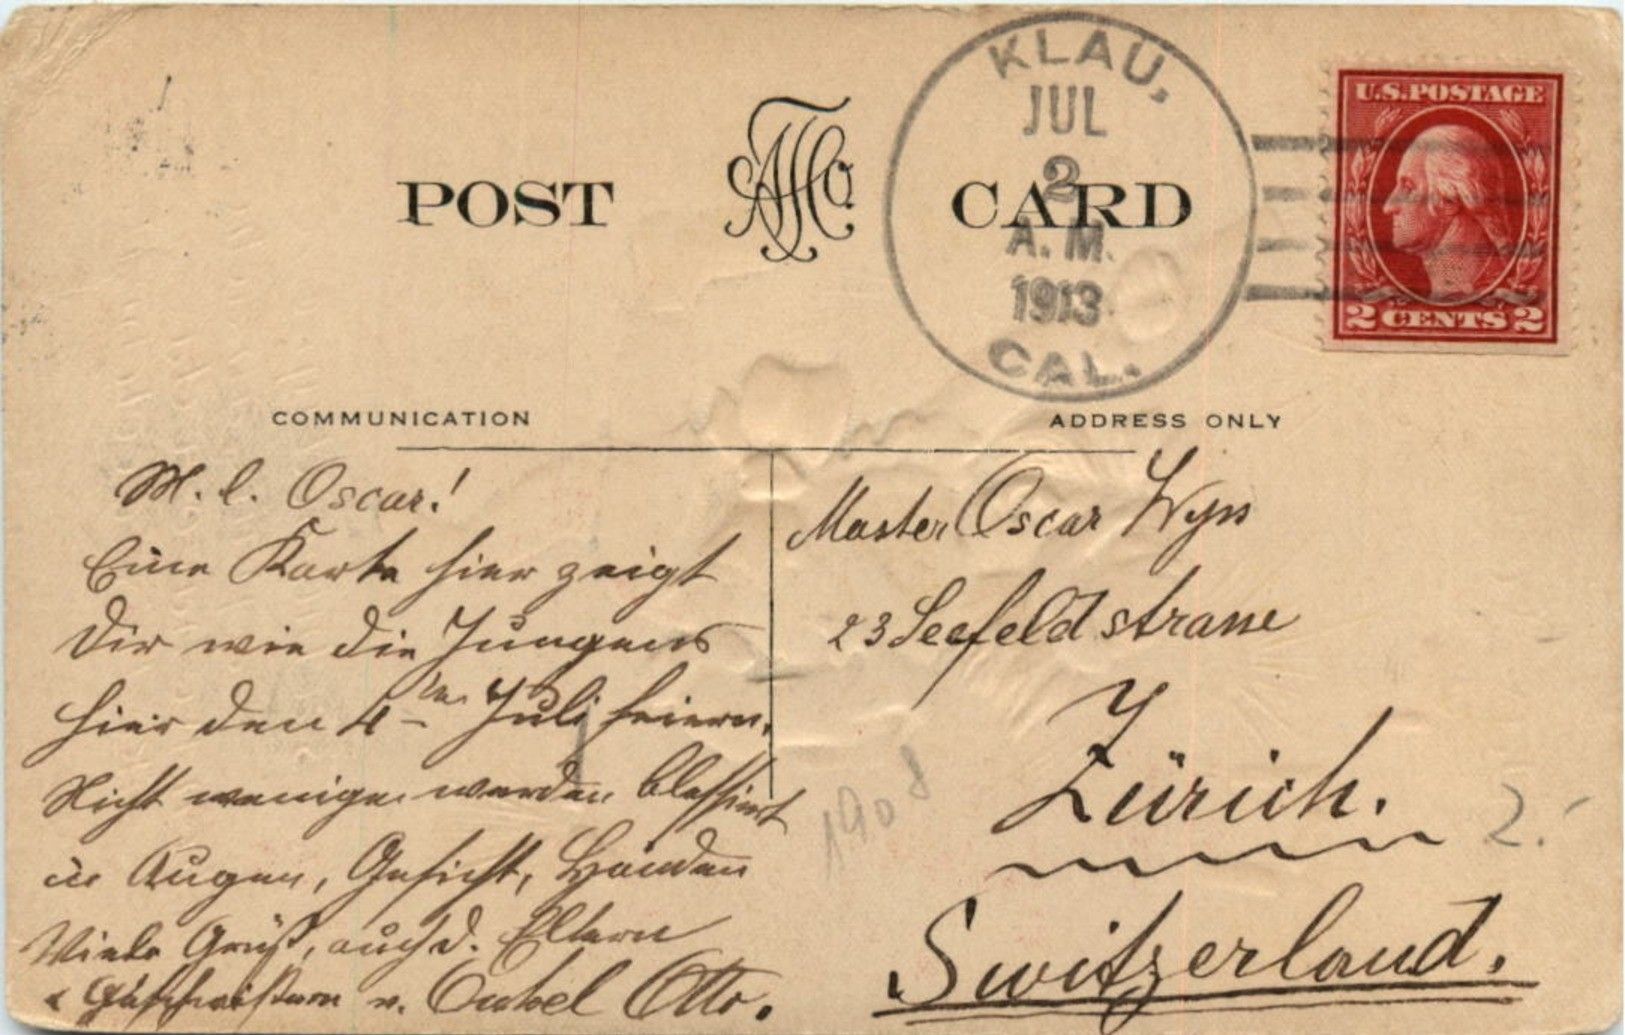 KLAU,
JUL
2
A. M.
1913
CAL.
U.S. POSTAGE
2 CENTS 2
POST CARD
COMMUNICATION
ADDRESS ONLY
M. l. Oscar!
Eine Karte hier zeigt
Dir wie die Jungens
hier den 4-ten Juli feiern.
Nicht wenige werden blessiert
in Augen, Gesicht, Händen
Viele Grüße, auch d. Eltern
& Geschwistern v. Onkel Otto.
Master Oscar Wyss
23 Seefeldstrasse
Zürich.
Switzerland.
1908
2.